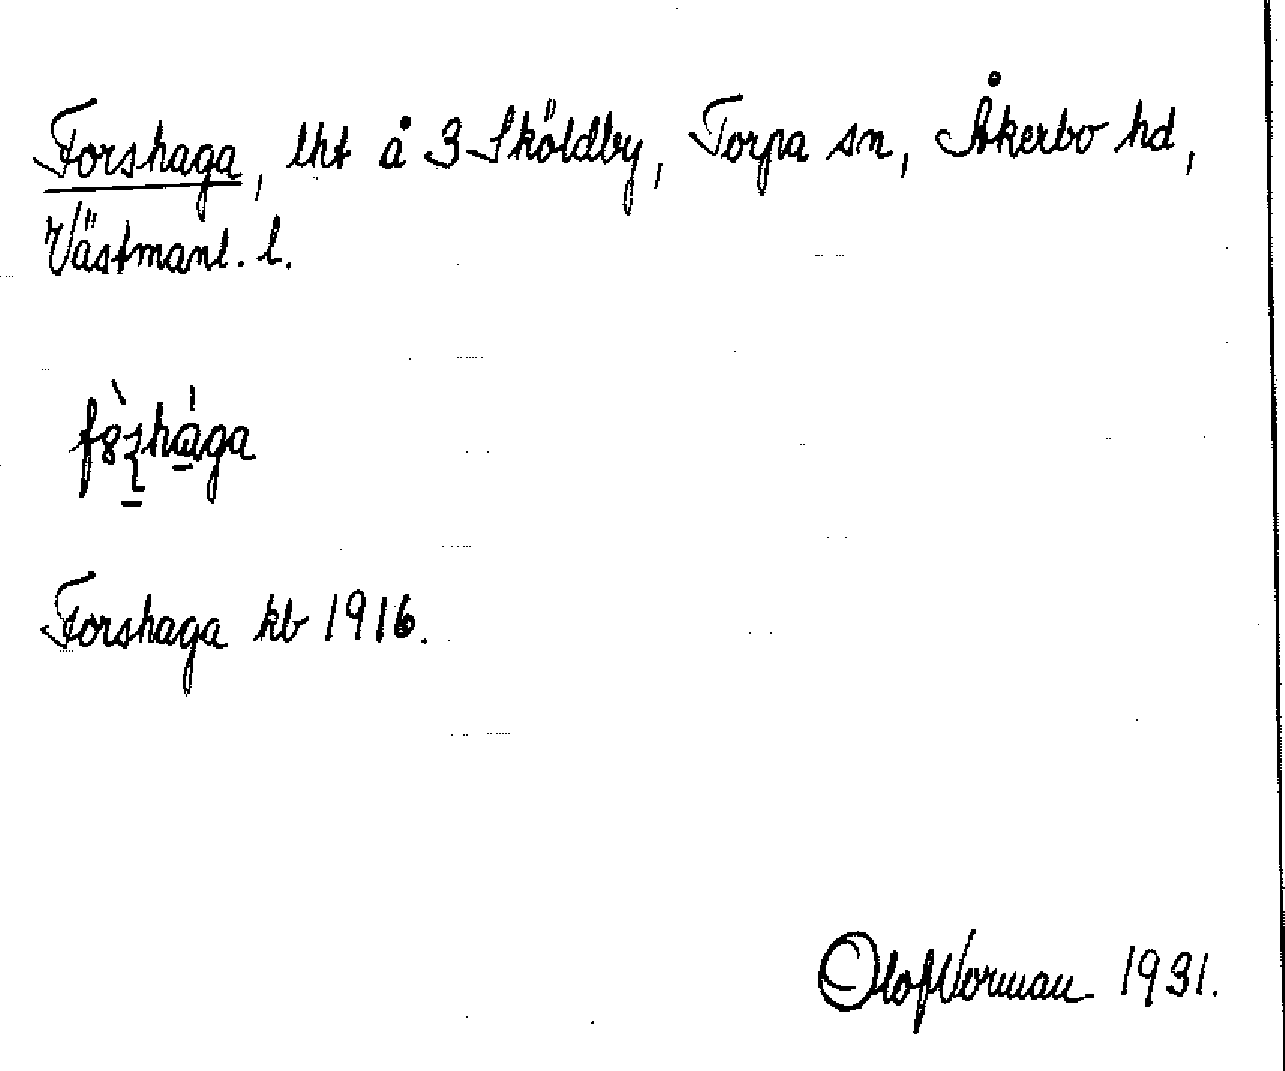 Forshaga, lht å 3 Sköldby, Torpa sn, Åkerbo hd,
Västmanl. l.
Forshaga kb 1916.
Olof Norman 1931.